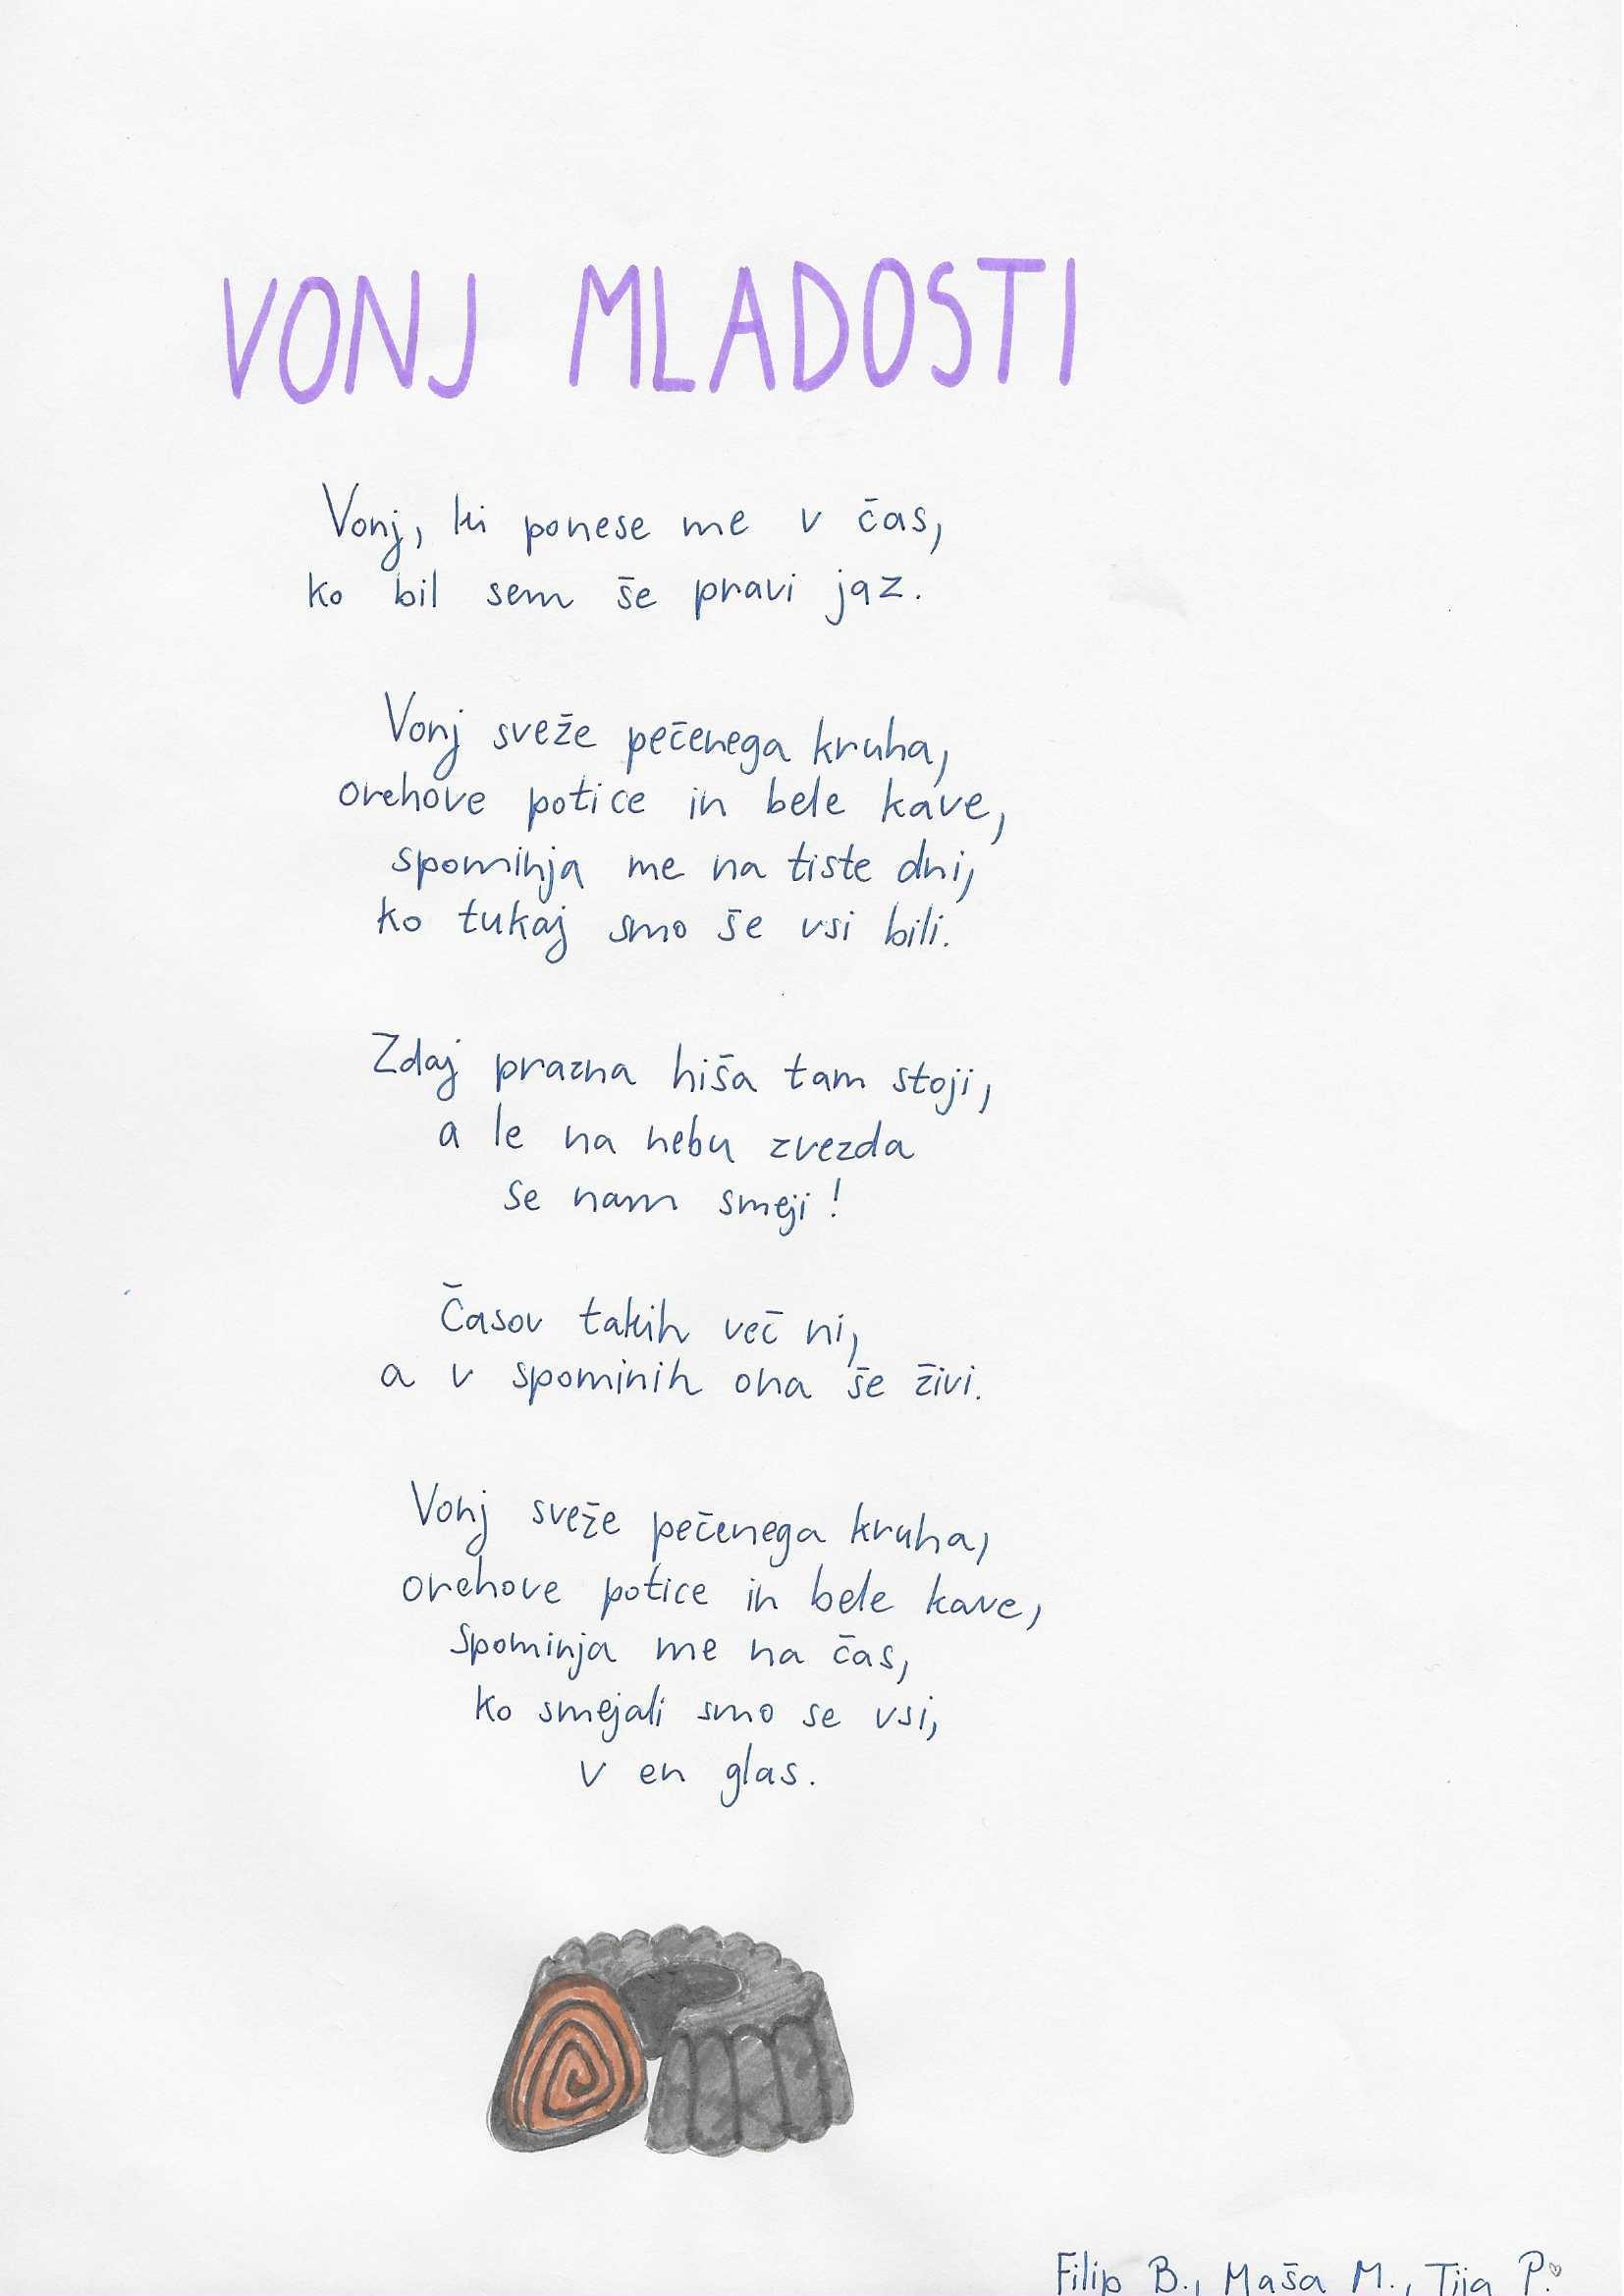 VONJ MLADOSTI
Vonj, ki ponese me v čas,
ko bil sem še pravi jaz.
Vonj sveže pečenega kruha,
orehove potice in bele kave,
spominja me na tiste dni,
ko tukaj smo še vsi bili.
Zdaj prazna hiša tam stoji,
a le na nebu zvezda
se nam smeji!
Časov takih več ni,
a v spominih ona še živi.
Vonj sveže pečenega kruha,
orehove potice in bele kave,
spominja me na čas,
ko smejali smo se vsi,
v en glas.
Filip B., Maša M., Tija P.